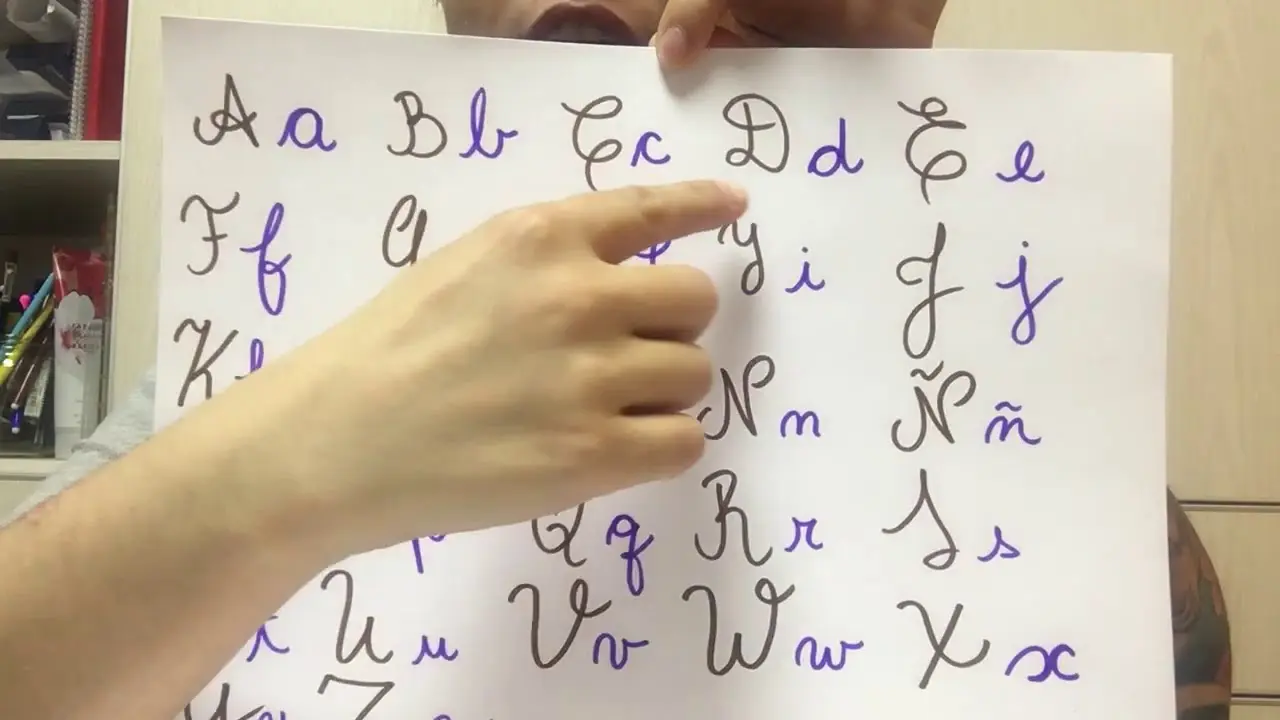 A a B b C c D d E e
F f G I i J j
K k N n Ñ ñ
p Q q R r S s
t U u V v W w X x
Y y Z